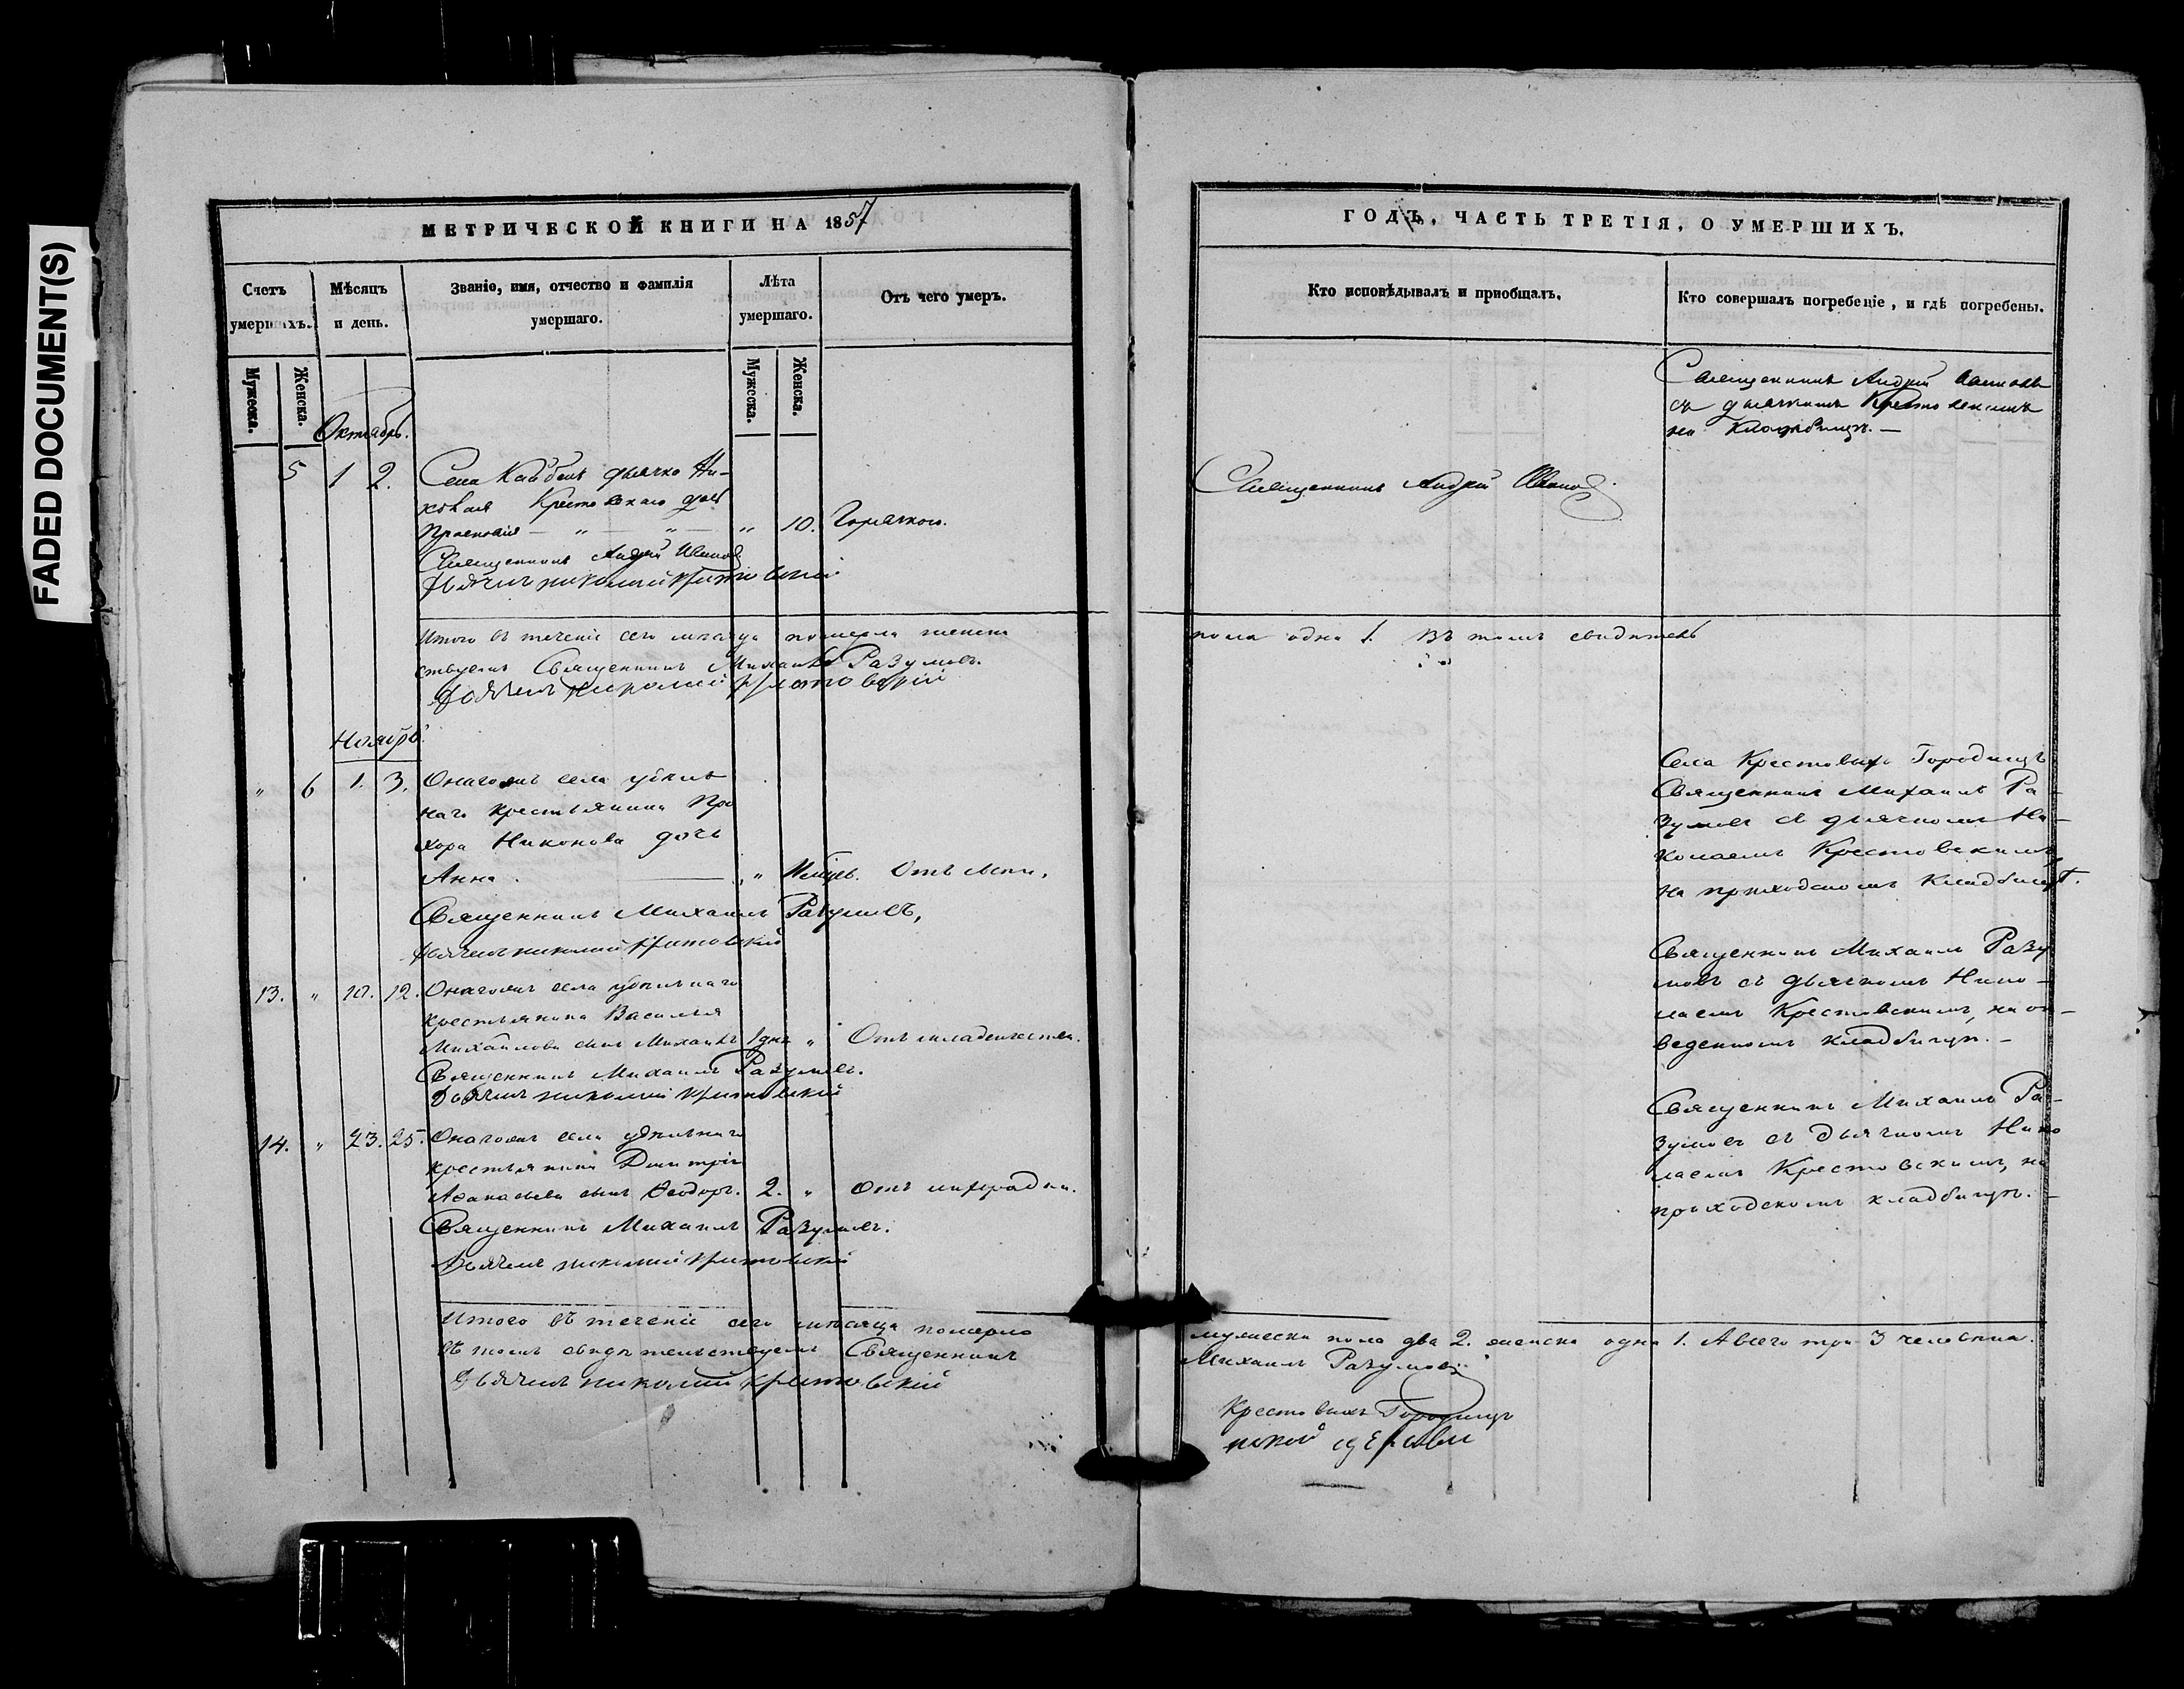 FADED DOCUMENT(S)
МЕТРИЧЕСКОЙ КНИГИ НА 1857
Счетъ умершихъ.
Мѣсяцъ и день.
Званіе, имя, отчество и фамилія умершаго.
Лѣта умершаго.
Отъ чего умеръ.
Мужеска.
Женска.
Мужеска.
Женска.
Октябрь.
5 1 2. Села Кайбелъ дьячка Ни-
колая Крестовскаго дочь
Прасковія — " — " — " 10. Горячкою.
Священникъ Андрей Ивановъ
Дьячекъ николай крестовскій
Итого въ теченіе сего мѣсяца померла женска
ствуемъ Священникъ Михаилъ Разумовъ.
Дьячекъ николай крестовскій
Ноябрь.
" 6 1. 3. Онагожъ села удѣль
наго крестьянина Про
хора Никонова дочь
Анна. — " Отъ
Священникъ Михаилъ Разумовъ,
Дьячекъ николай крестовскій
13. " 10. 12. Онагожъ села удѣльнаго
крестьянина Василья
Михайлова сынъ Михаилъ 1 дня " Отъ младенчества.
Священникъ Михаилъ Разумовъ.
Дьячекъ николай крестовскій
14. " 23. 25. Онагожъ села удѣльнаго
крестьянина Димитрія
Аѳанасьева сынъ Ѳеодоръ. 2. " Отъ лихорадки.
Священникъ Михаилъ Разумовъ.
Дьячекъ николай крестовскій
Итого въ теченіе сего мѣсяца померло
въ томъ свидѣтельствуемъ Священникъ
Дьячекъ николай крестовскій
ГОДЪ, ЧАСТЬ ТРЕТІЯ, О УМЕРШИХЪ.
Кто исповѣдывалъ и приобщалъ.
Кто совершалъ погребеніе, и гдѣ погребены.
Священникъ Андрей Ивановъ
съ дьячкомъ Крестовскимъ
на кладбищѣ. —
Священникъ Андрей Ивановъ.
пола одна 1. Въ томъ свидѣтель
Села Крестовыхъ Городищъ
Священникъ Михаилъ Ра-
зумовъ съ дьячкомъ Ни-
колаемъ Крестовскимъ,
на приходскомъ кладбищѣ.
Священникъ Михаилъ Разу
мовъ съ дьячкомъ Нико-
лаемъ Крестовскимъ, на от-
веденномъ кладбищѣ. —
Священникъ Михаилъ Ра-
зумовъ съ дьячкомъ Нико
лаемъ Крестовскимъ, на
приходскомъ кладбищѣ. —
мужеска пола два 2. женска одна 1. А всего три 3 человѣка.
Михаилъ Разумовъ
Крестовыхъ Городищъ